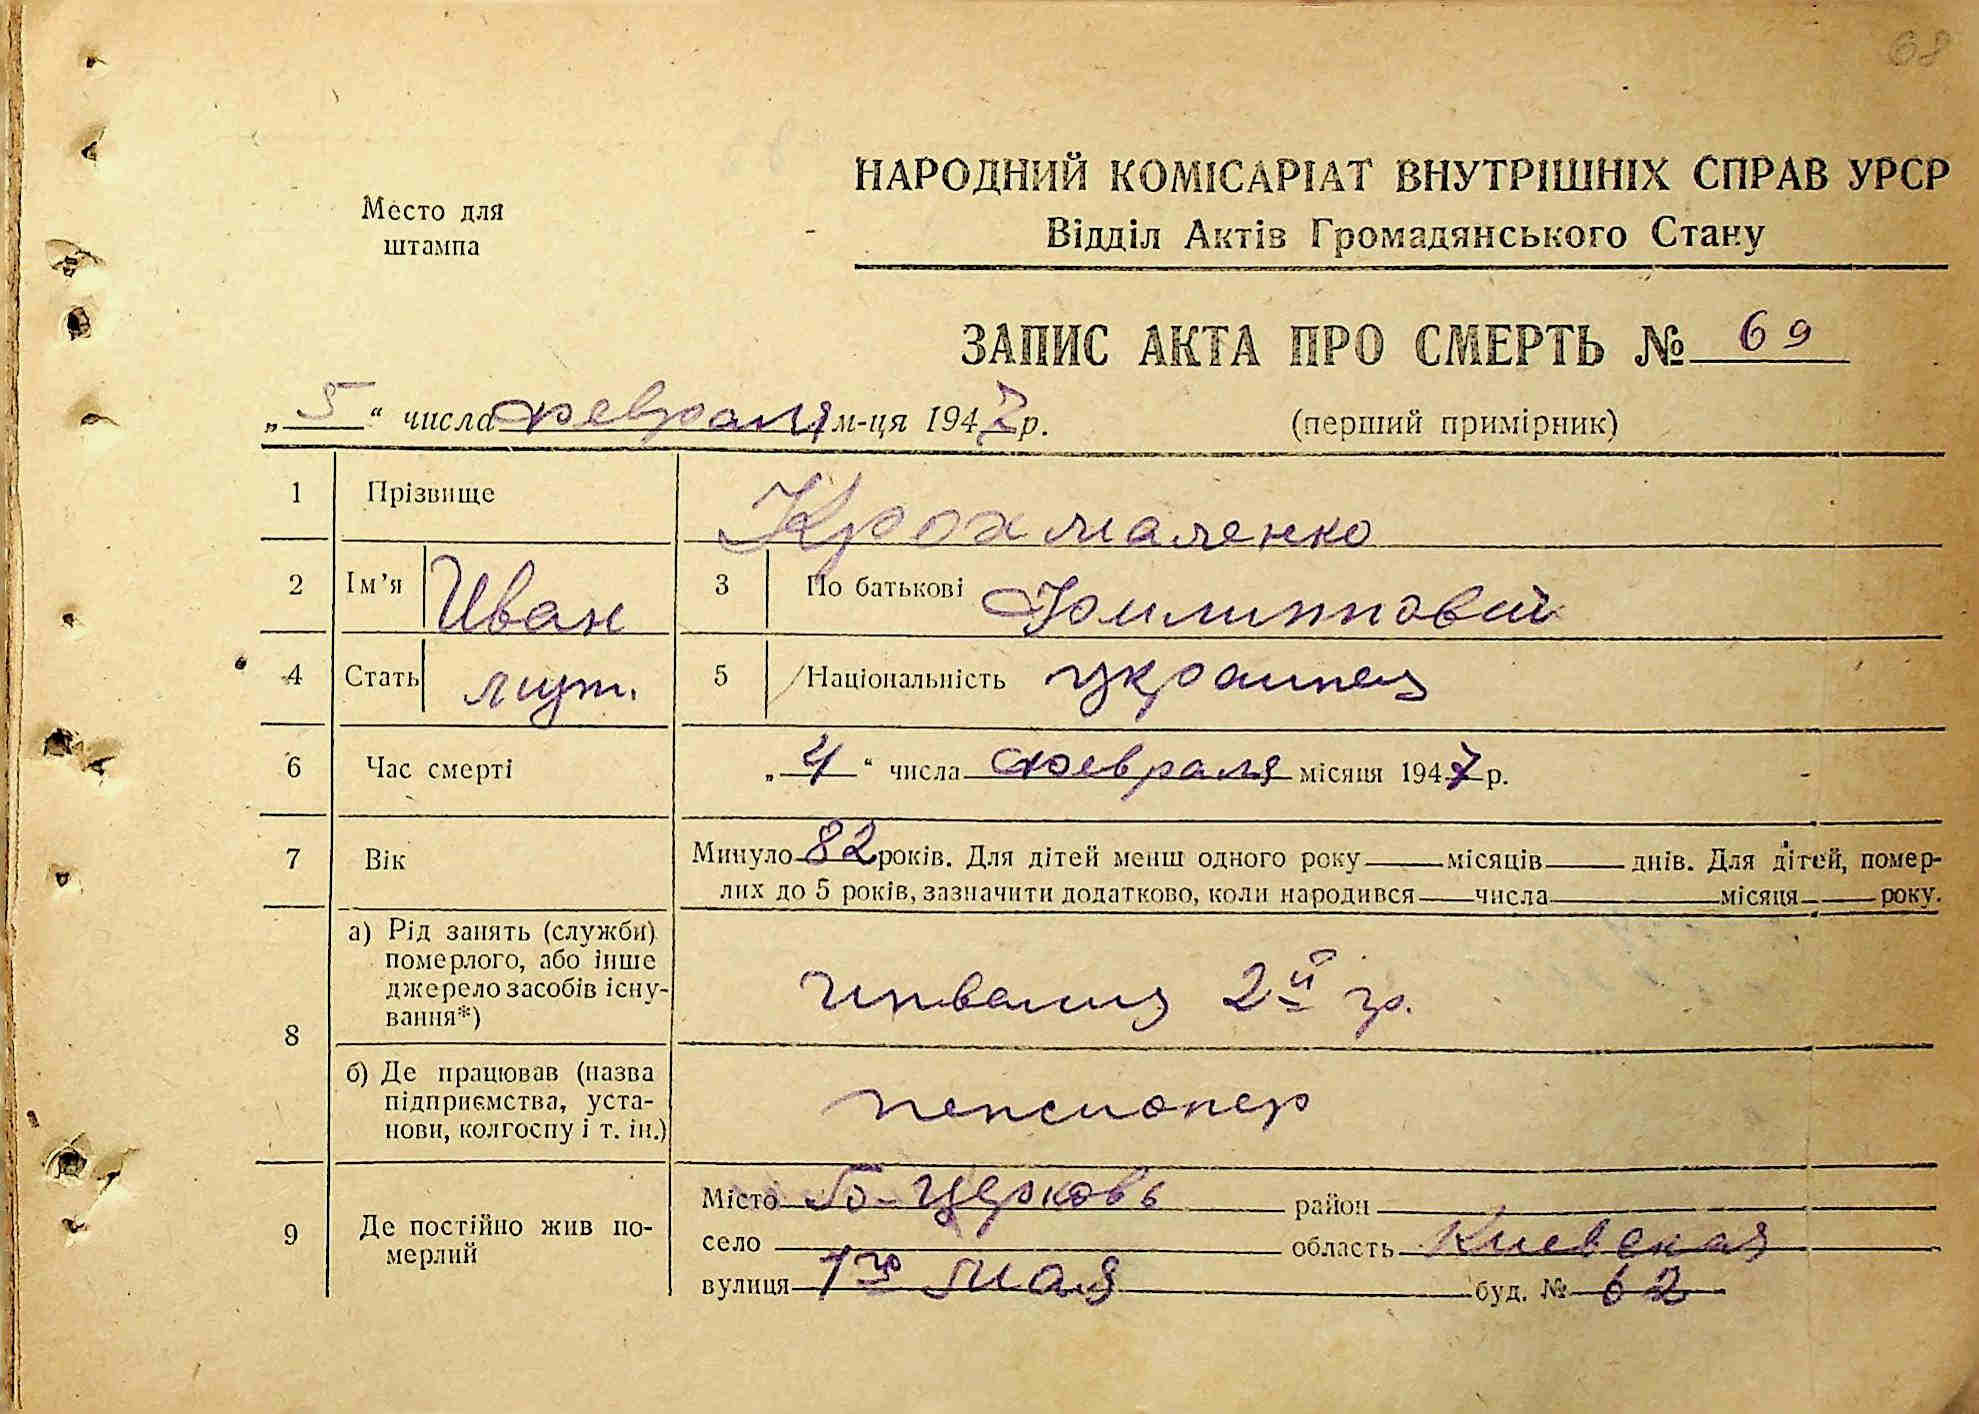 68
Место для
штампа
НАРОДНИЙ КОМІСАРІАТ ВНУТРІШНІХ СПРАВ УРСР
Відділ Актів Громадянського Стану
ЗАПИС АКТА ПРО СМЕРТЬ № 69
„5“ числа февраля м-ця 1947 р. (перший примірник)
1 Прізвище Крохмаленко
2 Ім’я Иван 3 По батькові Филиппович
4 Стать муж. 5 Національність украинец
6 Час смерті „4“ числа февраля місяця 1947 р.
7 Вік Минуло 82 років. Для дітей менш одного року місяців днів. Для дітей, помер-
лих до 5 років, зазначити додатково, коли народився числа місяця року.
8 а) Рід занять (служби)
померлого, або інше
джерело засобів існу-
вання*)
инвалид 2й гр.
б) Де працював (назва
підприємства, уста-
нови, колгоспу і т. ін.)
пенсионер
9 Де постійно жив по-
мерлий
Місто Б-Церковь район
село область Киевская
вулиця 1го Мая буд. № 62